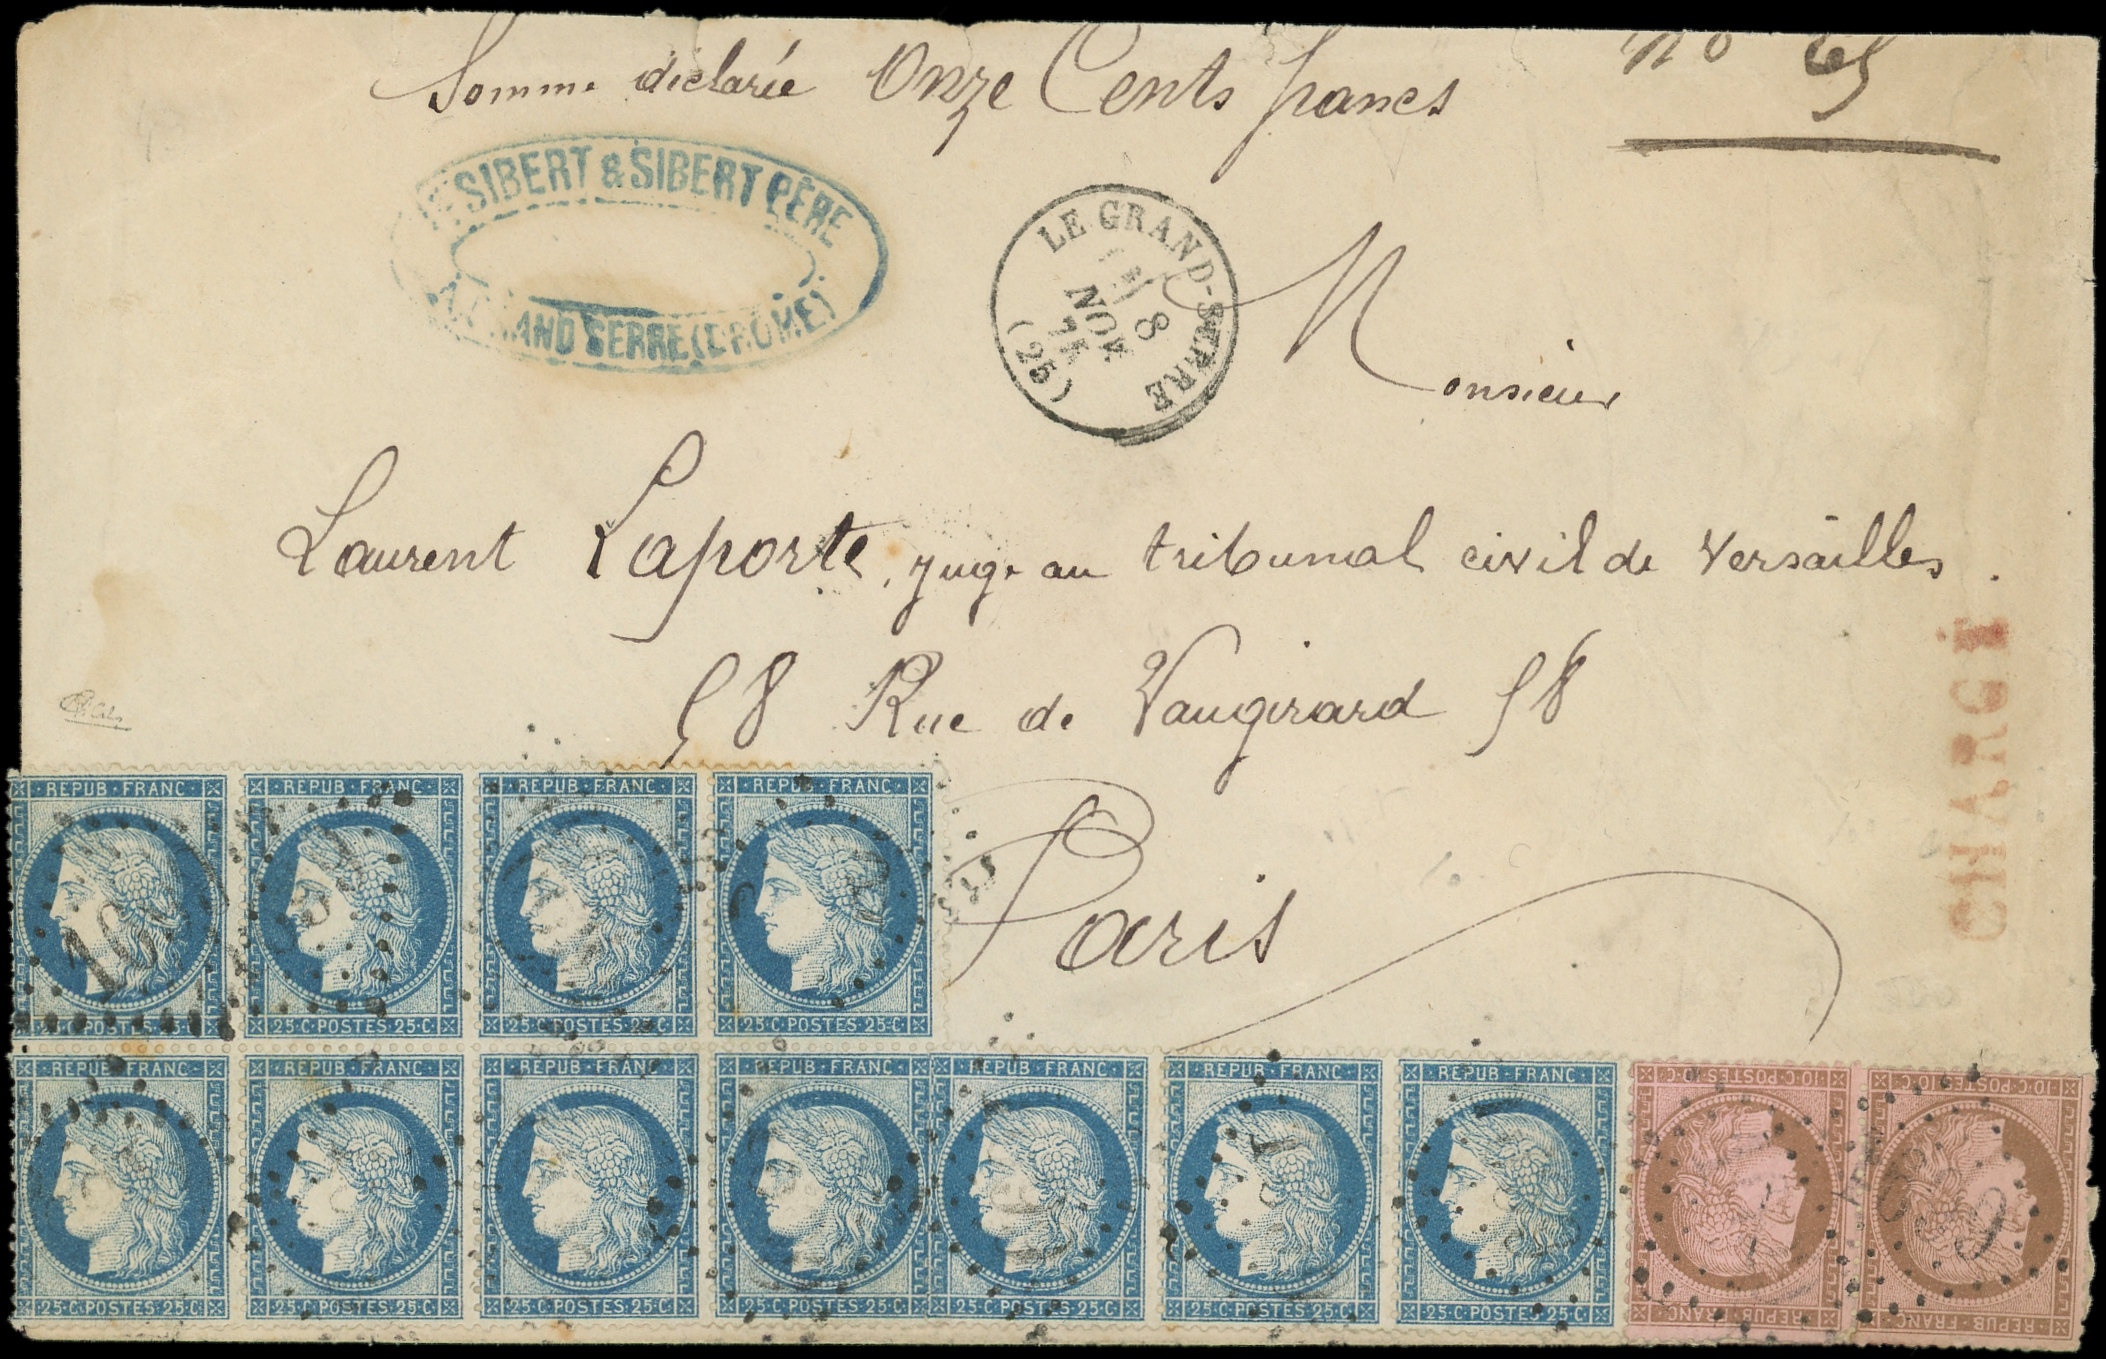 Somme déclarée Onze Cents francs
No
SIBERT & SIBERT PÈRE
AND SERRE (DROME)
LE GRAND-SERRE
8
NOV.
75
(25)
Monsieur
Laurent Laporte, juge au tribunal civil de Versailles.
58 Rue de Vaugirard 58
Paris
CHARGÉ
REPUB·FRANC· REPUB·FRANC· REPUB·FRANC· REPUB·FRANC·
25·C·POSTES·25·C· 25·C·POSTES·25·C· 25·C·POSTES·25·C· 25·C·POSTES·25·C·
REPUB·FRANC· REPUB·FRANC· REPUB·FRANC· REPUB·FRANC· REPUB·FRANC· REPUB·FRANC· REPUB·FRANC· 10·C·POSTES·10·C· 10·C·POSTES·10·C·
25·C·POSTES·25·C· 25·C·POSTES·25·C· 25·C·POSTES·25·C· 25·C·POSTES·25·C· 25·C·POSTES·25·C· 25·C·POSTES·25·C· 25·C·POSTES·25·C· REPUB·FRANC· REPUB·FRANC·